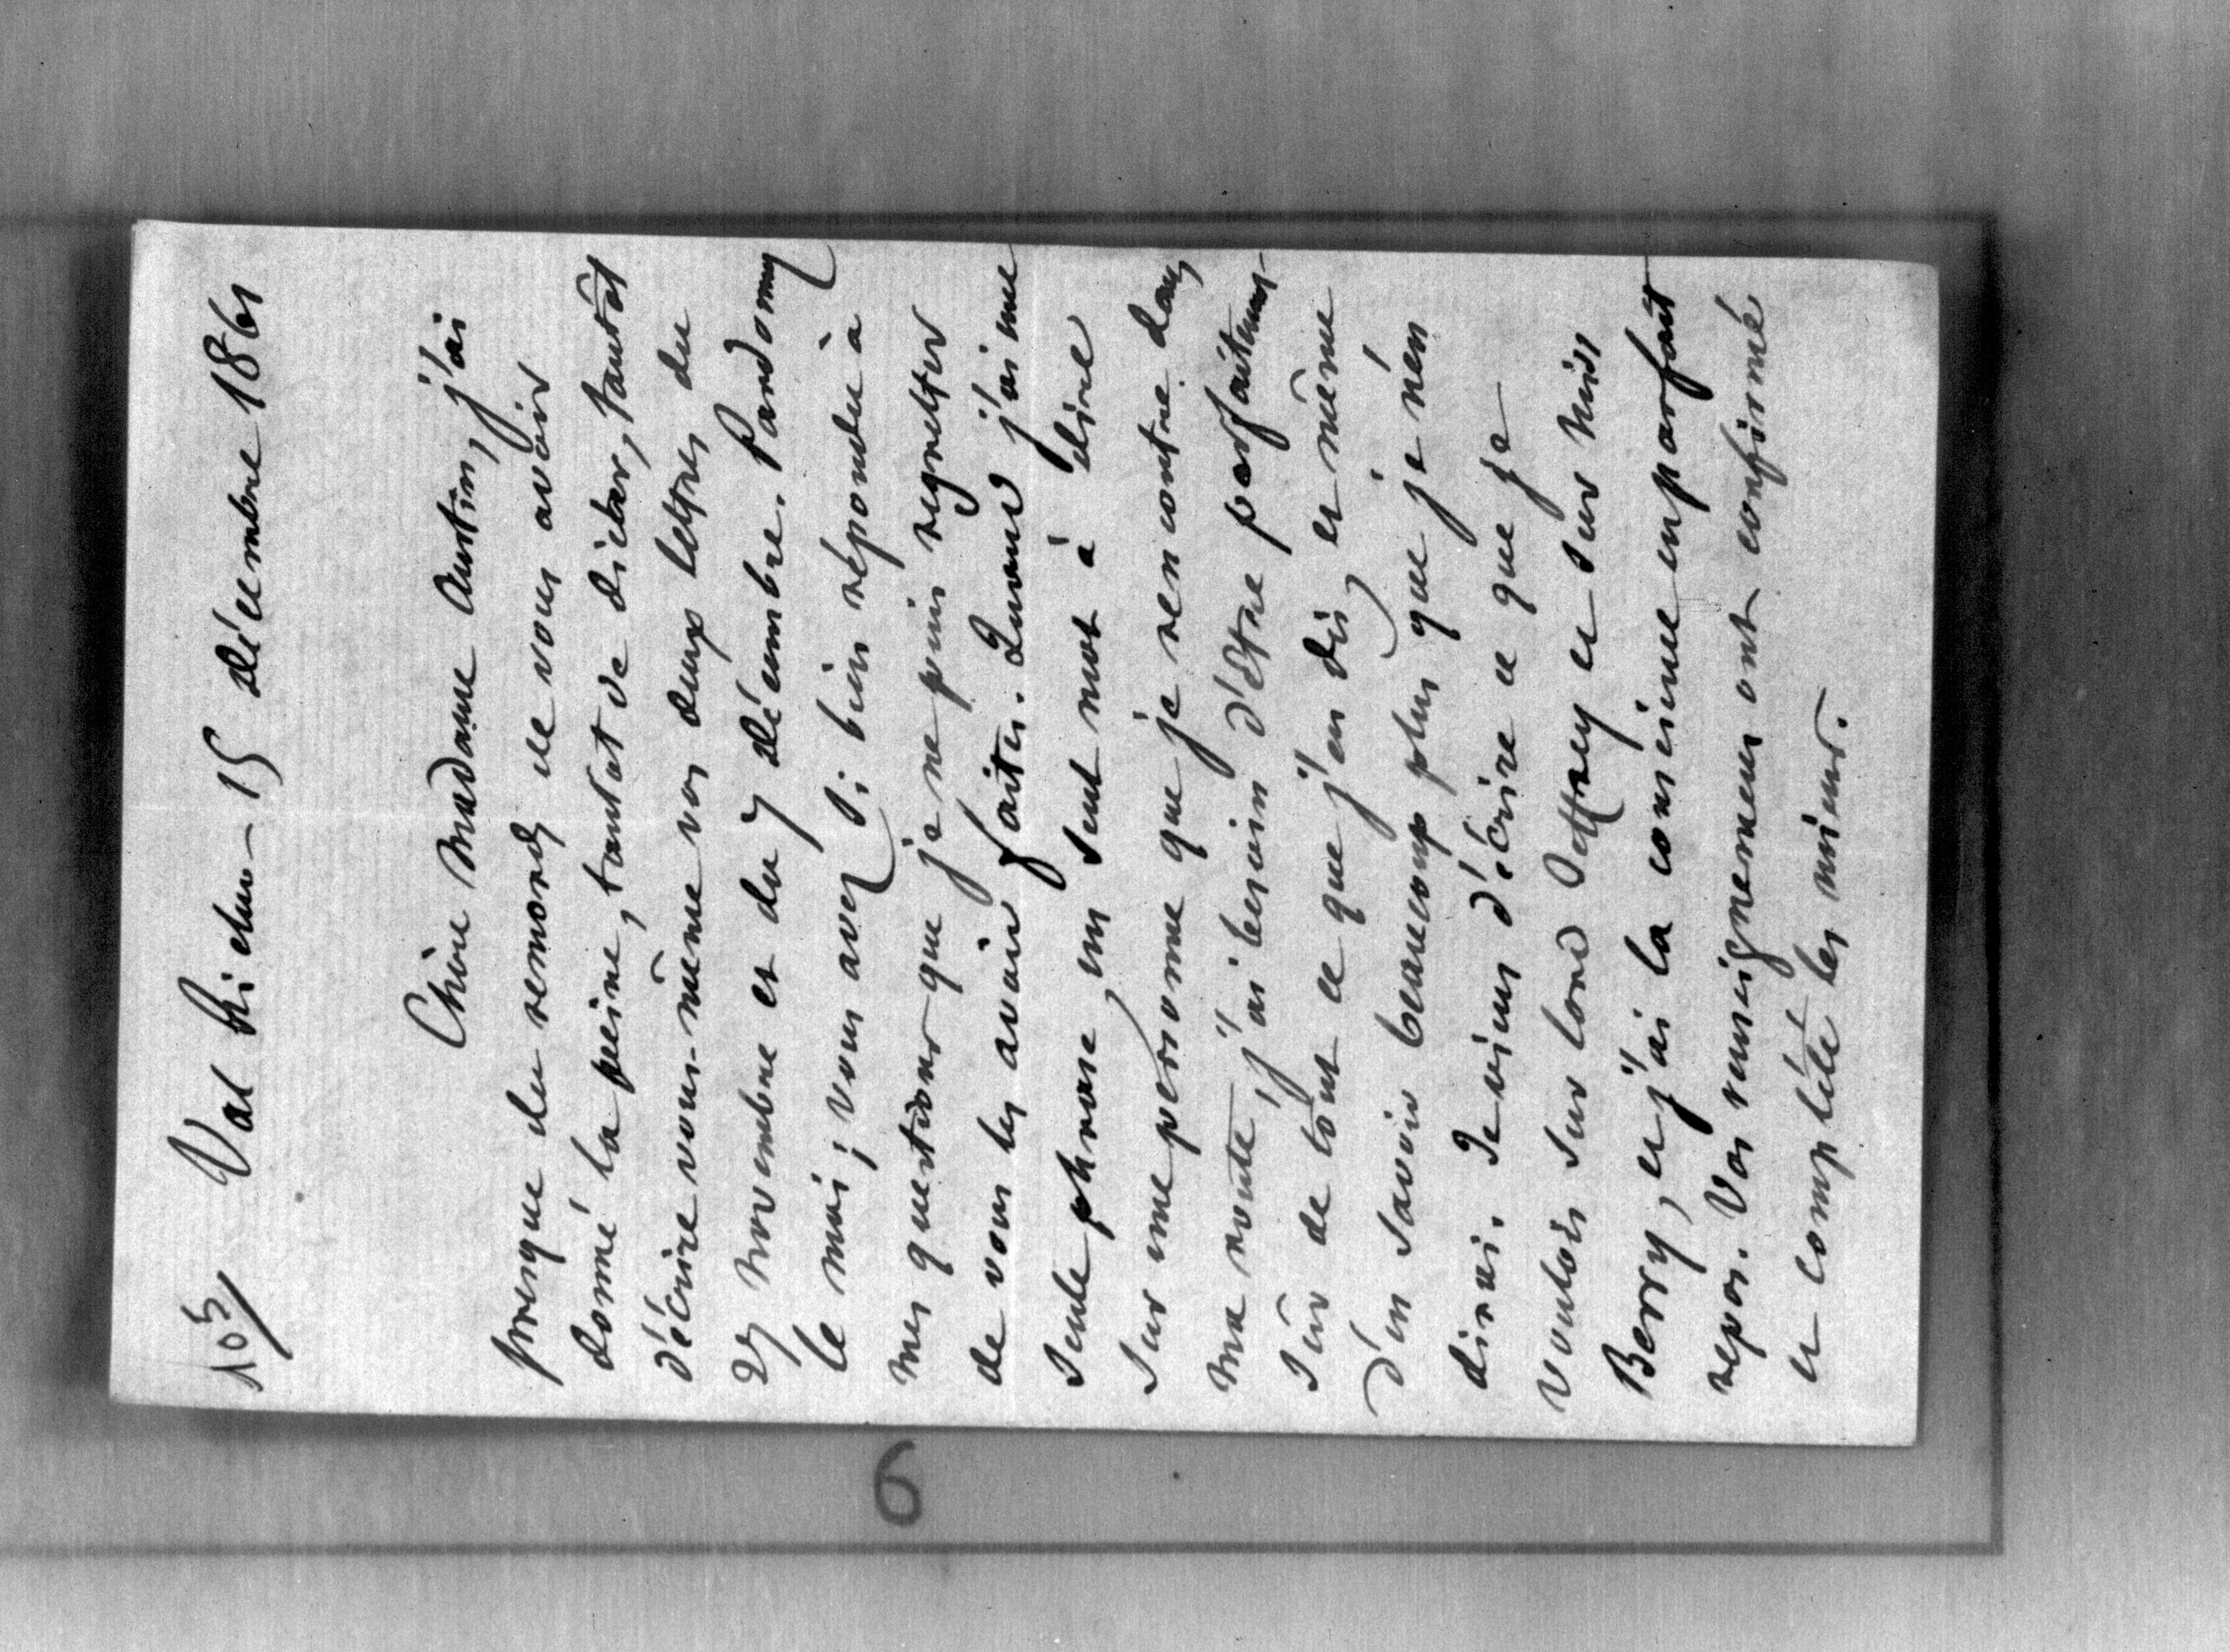 105/ Val Richer - 15 décembre 1861
Chère Madame Austin, j'ai
presque du remords de vous avoir
donné la peine, tantot de dicter, tantôt
d'écrire vous-même vos deux lettres du
29 novembre et du 7 décembre. Pardonnez
le moi ; vous avez si bien répondu à
mes questions que je ne puis regretter
de vous les avoir faites. Quand j'ai une
seule phrase, un seul mot à dire
sur une personne que je rencontre dans
ma route, j'ai besoin d'être parfaitement
sûr de tout ce que j'en dis, et même
d'en savoir beaucoup plus que je n'en
dirai. Je viens d'écrire ce que je
voulois sur lord Jeffrey et sur Miss
Berry, et j'ai la conscience en parfait
repos. Vos renseignemens ont confirmé
et complété les miens.
6